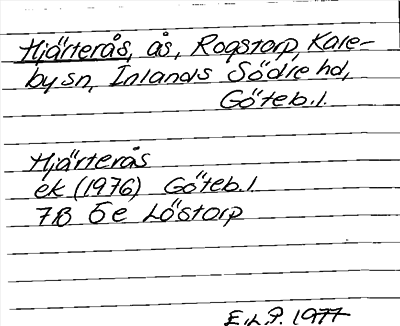 Hjärterås, ås, Rogstorp, Kare-
by sn, Inlands Södre hd,
Göteb.l.
Hjärterås
ek (1976) Göteb.l.
7B 5e Löstorp
E.L.P. 1977